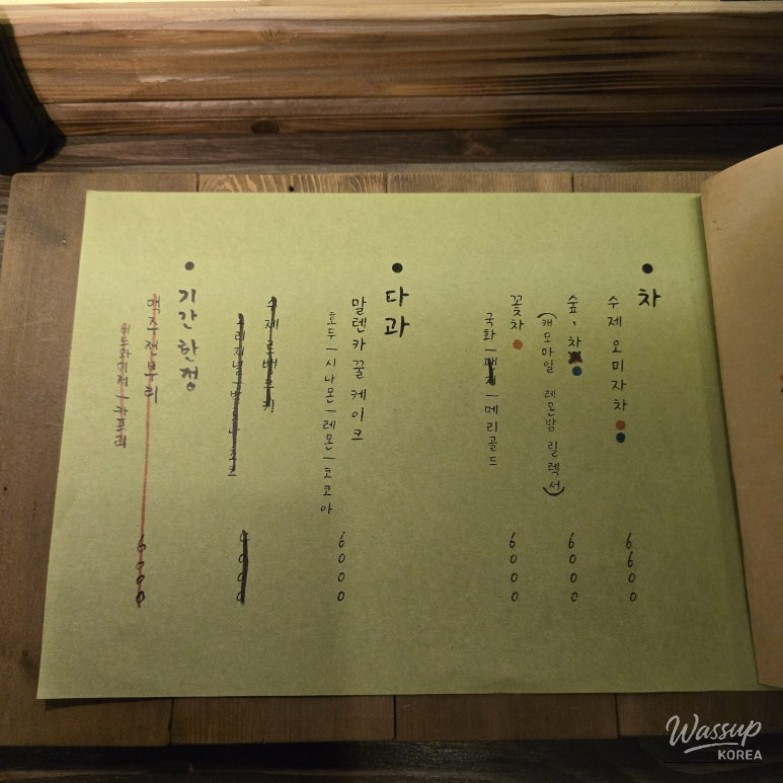 차
수제 오미자차
6600
숲, 차
(캐모마일 레몬밤 릴렉서)
6000
꽃차
국화 | 팬지 | 메리골드
6000
다과
말렌카 꿀케이크
호두 | 시나몬 | 레몬 | 코코아
6000
수제
4000
기간한정
맥주 맨부리
6000
Wassup
KOREA